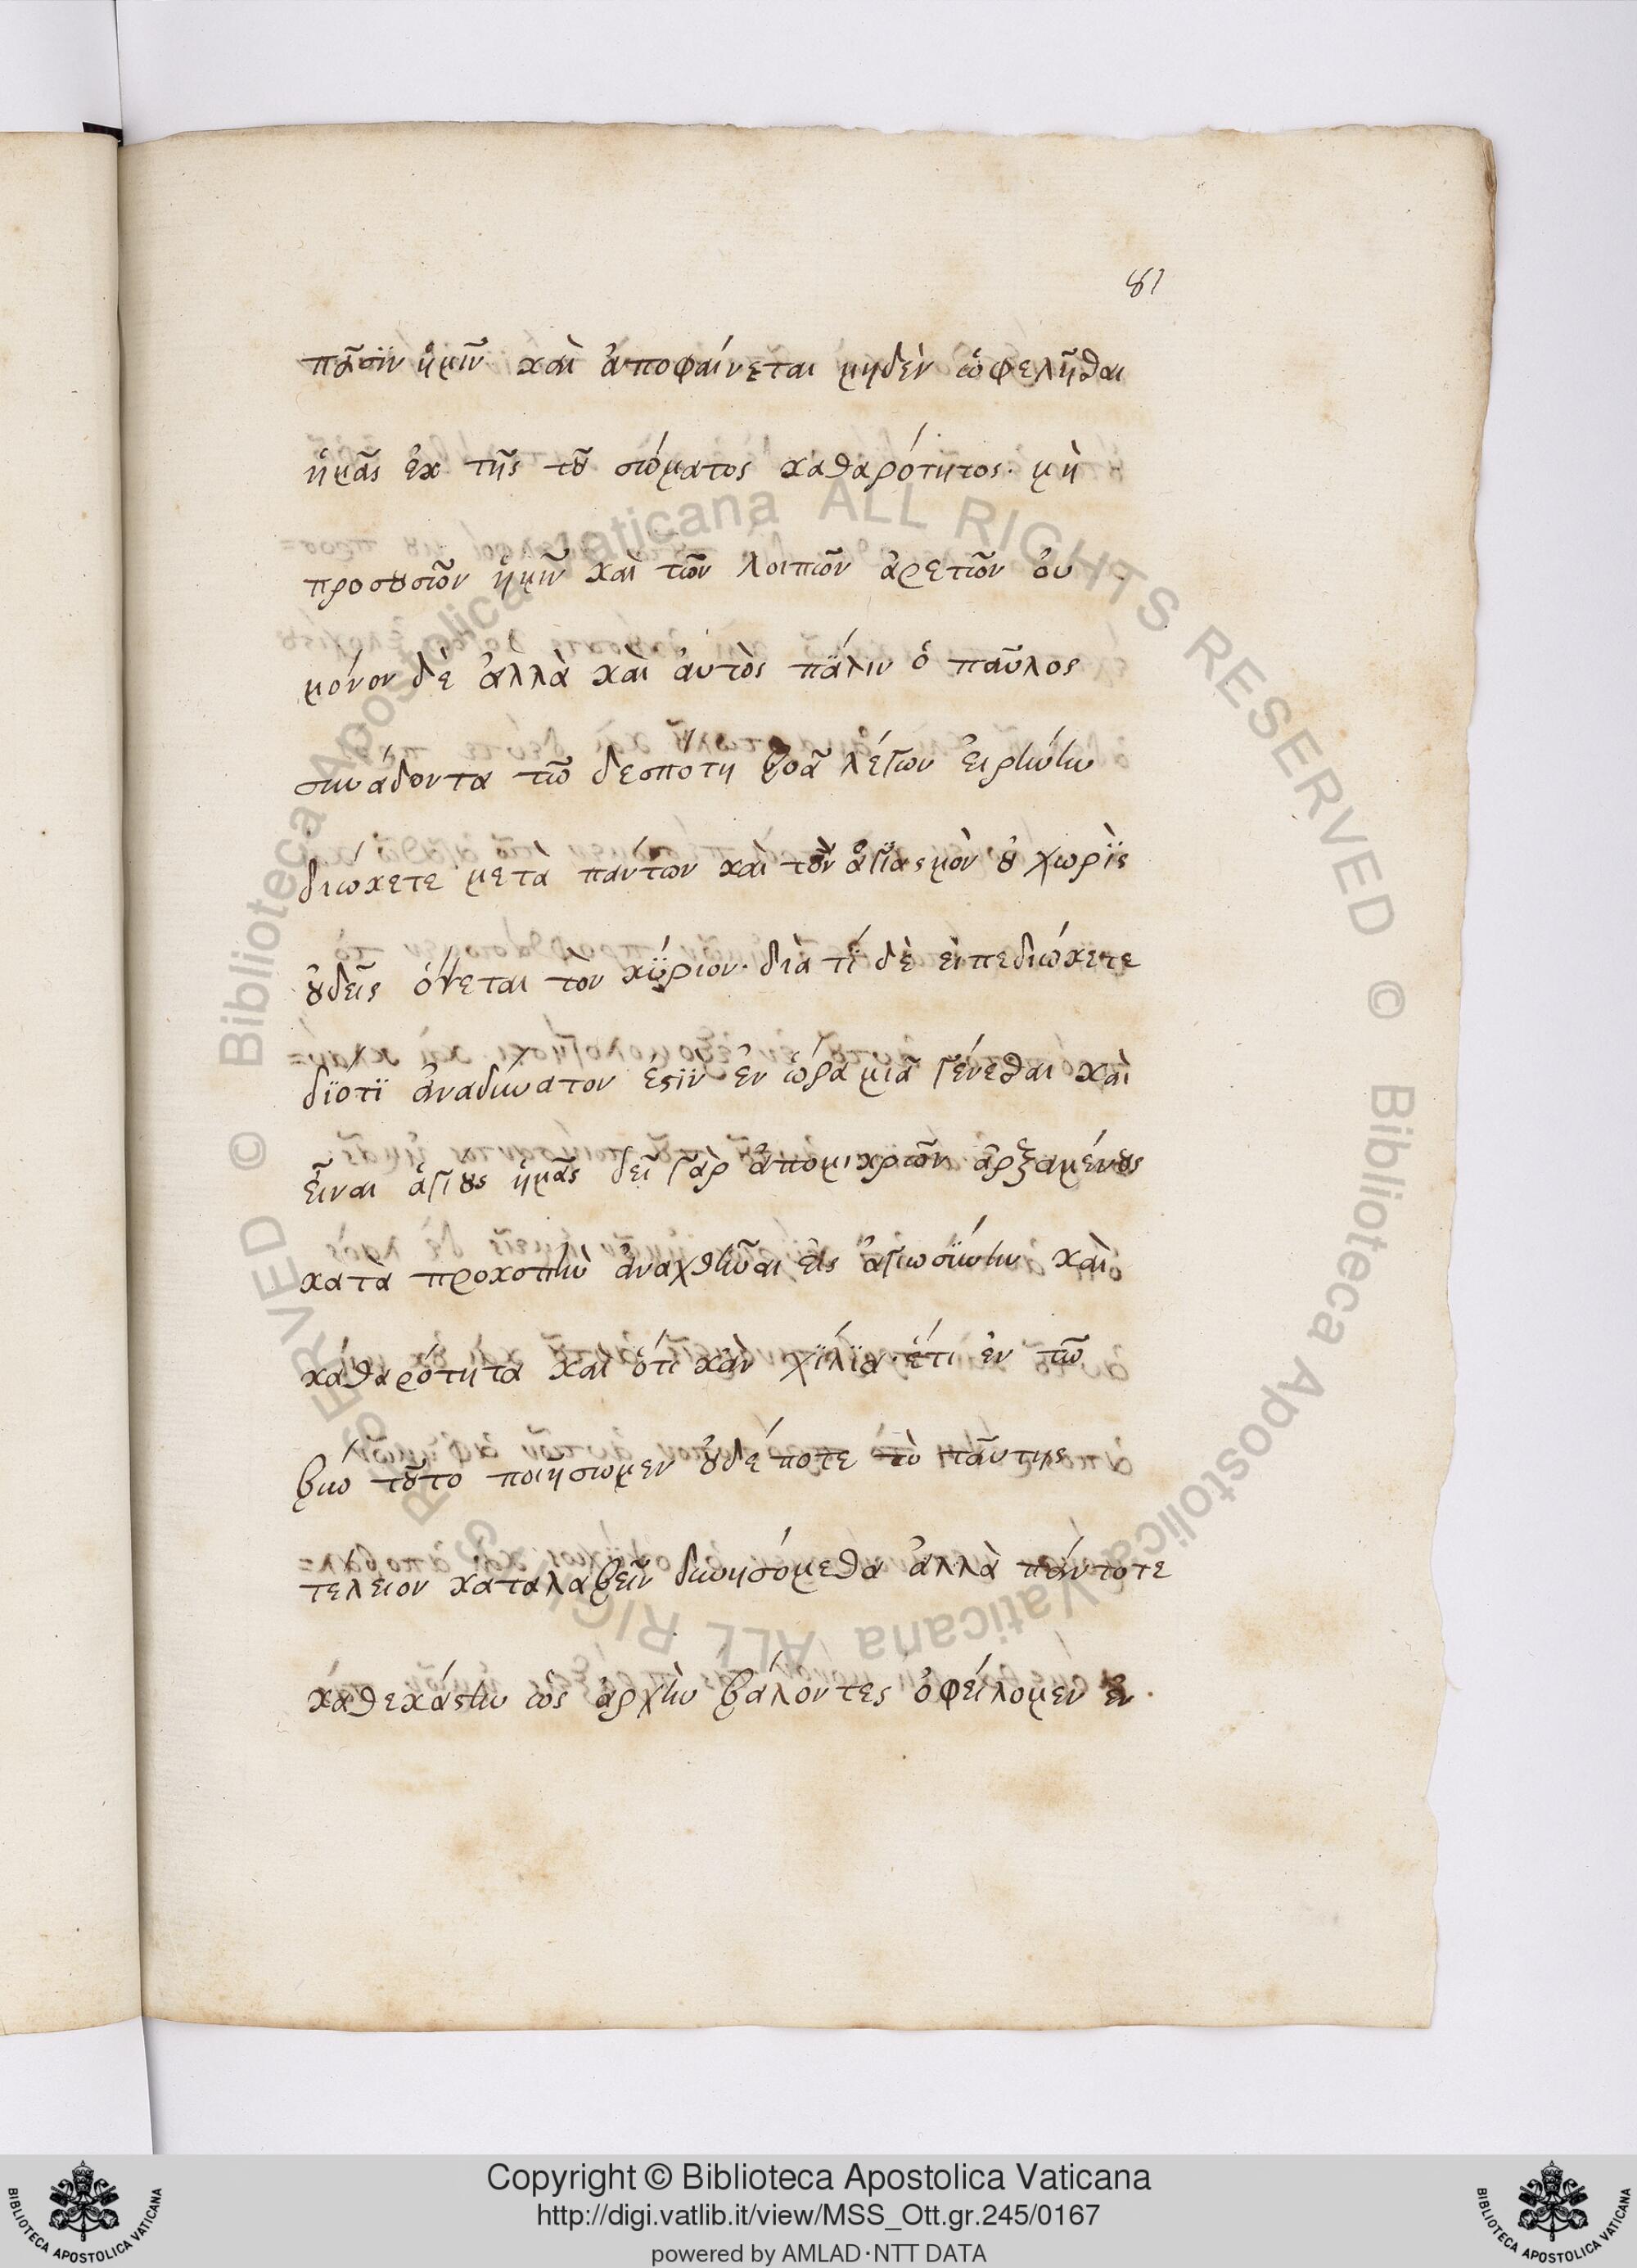 81
πᾶσϊν ἡμῖν καὶ ἀποφαίνεται μηδὲν ὠφελῆσθαι
ἡμᾶς ἐκ τῆς τοῦ σώματος καθαρότητος· μὴ
προσουσῶν ἡμῖν καὶ τῶν λοιπῶν ἀρετῶν ὀυ
μόνον δὲ ἀλλὰ καὶ ἀυτὸς πάλιν ὁ παῦλος
συνάδοντα τῶ δεσπότη βοᾶ λέγων ἐιρήνην
διώκετε μετὰ πάντων καὶ τὸν ἁγϊασμὸν οὗ χωρὶς
οὐδεὶς ὄψεται τὸν κύριον· διὰ τί δὲ εἶπε διώκετε
δϊότϊ ἀναδύνατον ἐστϊν ἐν ὥρα μιᾶ γενέσθαι καὶ
εἶναι ἁγίους ἡμᾶς δεῖ γὰρ ἀπομικρῶν ἀρξαμένους
κατὰ προκοπὴν ἀναχθῆναι εἰς ἁγιωσύνην καὶ
καθαρότητα καὶ ὅτι κὰν χΐλϊα ἔτι ἐν τῶ
βίω τοῦτο ποιήσωμεν οὐδέποτε τὸ ταύτης
τέλειον καταλαβεῖν δυνησόμεθα ἀλλὰ πάντοτε
καθεκάστην ὡς ἀρχὴν βάλοντες ὀφείλομεν ἐν
Copyright © Biblioteca Apostolica Vaticana
http://digi.vatlib.it/view/MSS_Ott.gr.245/0167
powered by AMLAD·NTT DATA
BIBLIOTECA APOSTOLICA VATICANA
BIBLIOTECA APOSTOLICA VATICANA
© Biblioteca Apostolica Vaticana ALL RIGHTS RESERVED © Biblioteca Apostolica Vaticana ALL RIGHTS RESERVED